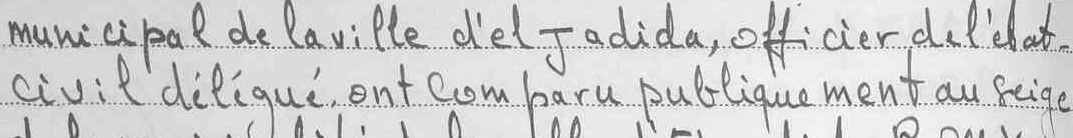 municipal de la ville d'el Jadida, officier de l'état-
civil délégué, ont comparu publiquement au seige